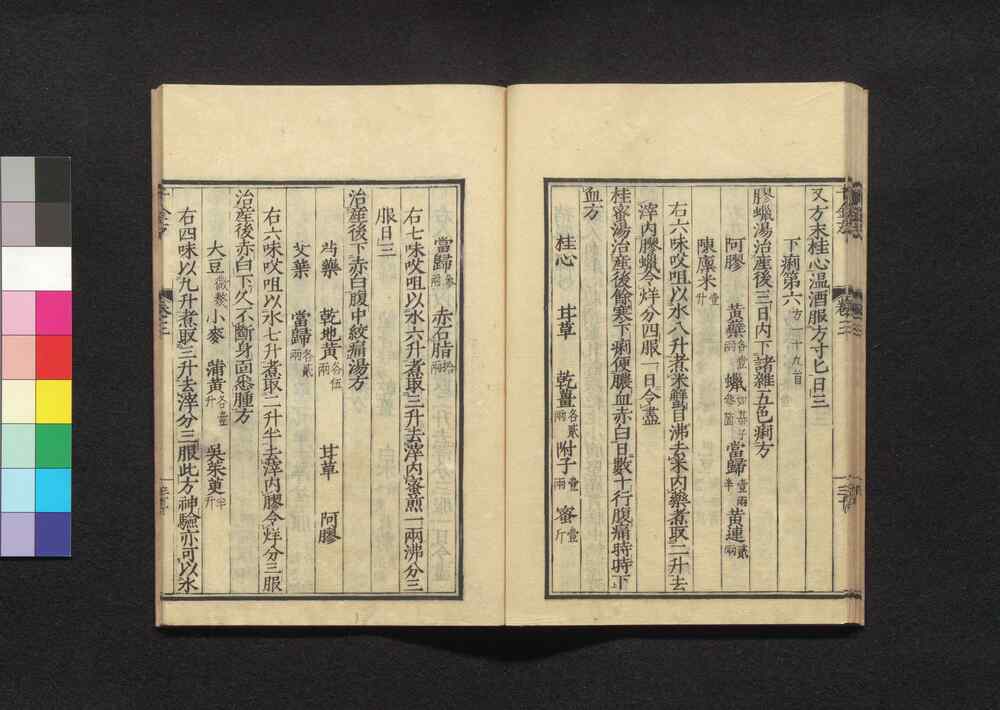 又方末桂心温酒服方寸匕日三
下痢第六方一十九首
膠蠟湯治產後三日内下諸雜五色痢方
阿膠 黃蘗各壹兩 蠟如碁子 當歸壹兩半 黃連貳兩
陳廩米壹升
右六味㕮咀以水八升煮米蟹目沸去米内藥煮取二升去
滓内膠蠟令烊分四服一日令盡
桂蜜湯治產後餘寒下痢便膿血赤白日數十行腹痛時時下
血方
桂心 甘草 乾薑各貳兩 附子壹兩 蜜壹斤
當歸 赤石脂拾兩
右七味㕮咀以水六升煮取三升去滓内蜜煎一兩沸分三
服日三
治產後下赤白腹中絞痛湯方
芍藥 乾地黃各伍兩 甘草 阿膠
艾葉 當歸各貳兩
右六味㕮咀以水七升煮取二升半去滓内膠令烊分三服
治產後赤白下久不斷身面悉腫方
大豆微熬 小麥 蒲黃各壹升 吳茱萸半斤
右四味以九升煮取三升去滓分三服此方神驗亦可以水